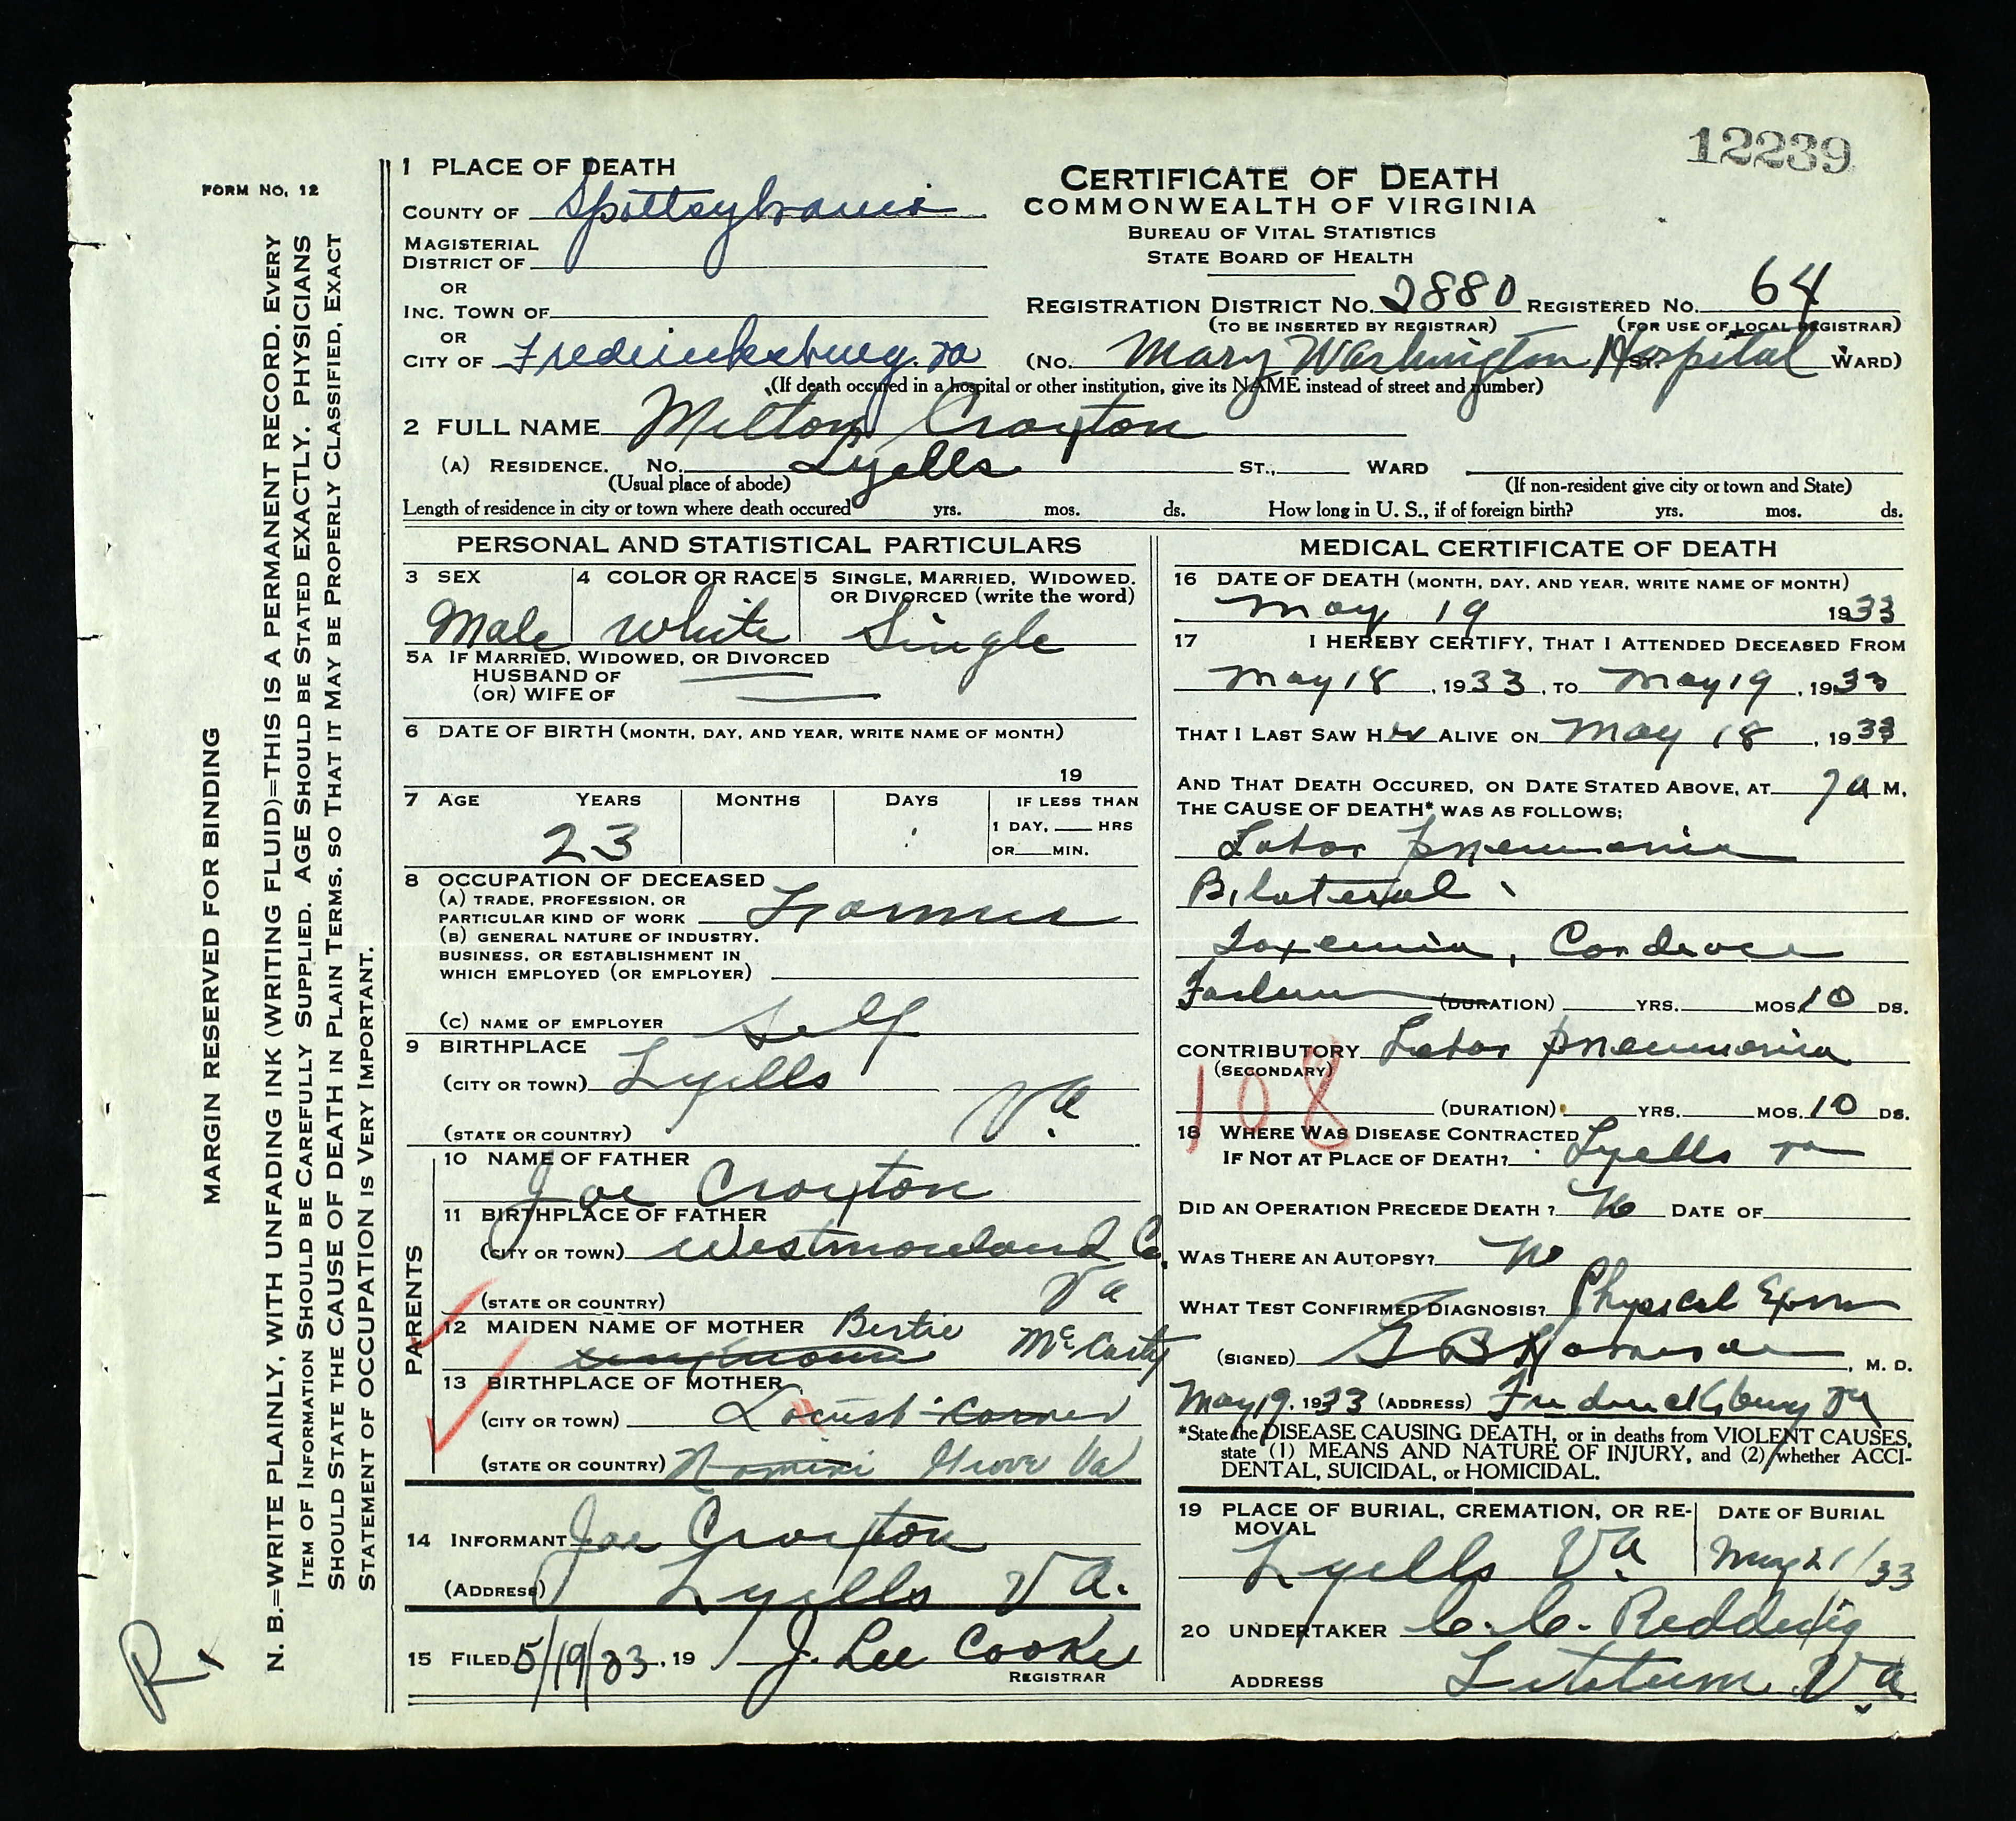 12239
FORM NO. 12
MARGIN RESERVED FOR BINDING
N. B.=WRITE PLAINLY, WITH UNFADING INK (WRITING FLUID)=THIS IS A PERMANENT RECORD. EVERY
ITEM OF INFORMATION SHOULD BE CAREFULLY SUPPLIED. AGE SHOULD BE STATED EXACTLY. PHYSICIANS
SHOULD STATE THE CAUSE OF DEATH IN PLAIN TERMS, SO THAT IT MAY BE PROPERLY CLASSIFIED, EXACT
STATEMENT OF OCCUPATION IS VERY IMPORTANT.
1 PLACE OF DEATH
COUNTY OF Spottsylvania
MAGISTERIAL
DISTRICT OF
OR
INC. TOWN OF
OR
CITY OF Fredericksburg. Va
CERTIFICATE OF DEATH
COMMONWEALTH OF VIRGINIA
BUREAU OF VITAL STATISTICS
STATE BOARD OF HEALTH
REGISTRATION DISTRICT NO. 2880 REGISTERED NO. 64
(TO BE INSERTED BY REGISTRAR) (FOR USE OF LOCAL REGISTRAR)
(NO. Mary Washington Hospital ST. WARD)
(If death occured in a hospital or other institution, give its NAME instead of street and number)
2 FULL NAME Milton Croxton
(A) RESIDENCE. NO. Lyells ST., WARD
(Usual place of abode) (If non-resident give city or town and State)
Length of residence in city or town where death occured yrs. mos. ds. How long in U. S., if of foreign birth? yrs. mos. ds.
PERSONAL AND STATISTICAL PARTICULARS
3 SEX 4 COLOR OR RACE 5 SINGLE, MARRIED, WIDOWED,
OR DIVORCED (write the word)
Male White Single
5A IF MARRIED, WIDOWED, OR DIVORCED
HUSBAND OF
(OR) WIFE OF
6 DATE OF BIRTH (MONTH, DAY, AND YEAR, WRITE NAME OF MONTH)
19
7 AGE YEARS MONTHS DAYS IF LESS THAN
1 DAY, HRS
OR MIN.
23
8 OCCUPATION OF DECEASED
(A) TRADE, PROFESSION, OR
PARTICULAR KIND OF WORK Farmer
(B) GENERAL NATURE OF INDUSTRY,
BUSINESS, OR ESTABLISHMENT IN
WHICH EMPLOYED (OR EMPLOYER)
(C) NAME OF EMPLOYER Self
9 BIRTHPLACE
(CITY OR TOWN) Lyells
(STATE OR COUNTRY) Va.
PARENTS
10 NAME OF FATHER
Joe Croxton
11 BIRTHPLACE OF FATHER
(CITY OR TOWN) Westmoreland Co.
(STATE OR COUNTRY) Va
12 MAIDEN NAME OF MOTHER Bertie McCarty
unknown
13 BIRTHPLACE OF MOTHER
(CITY OR TOWN) Locust Corner
(STATE OR COUNTRY) Nomini Grove Va
14 INFORMANT Joe Croxton
(ADDRESS) Lyells Va.
15 FILED 5/19/33, 19 J. Lee Cooke
REGISTRAR
MEDICAL CERTIFICATE OF DEATH
16 DATE OF DEATH (MONTH, DAY, AND YEAR, WRITE NAME OF MONTH)
May 19 1933
17 I HEREBY CERTIFY, THAT I ATTENDED DECEASED FROM
May 18, 1933, TO May 19, 1933
THAT I LAST SAW H ALIVE ON May 18, 1933
AND THAT DEATH OCCURED, ON DATE STATED ABOVE, AT 7a M.
THE CAUSE OF DEATH* WAS AS FOLLOWS:
Lobar pneumonia
Bilateral
Toxemia, Cardiace
Failure (DURATION) YRS. MOS. 10 DS.
CONTRIBUTORY Lobar pneumonia
(SECONDARY)
108
(DURATION) YRS. MOS. 10 DS.
18 WHERE WAS DISEASE CONTRACTED
IF NOT AT PLACE OF DEATH? Lyells Va
DID AN OPERATION PRECEDE DEATH? No DATE OF
WAS THERE AN AUTOPSY? No
WHAT TEST CONFIRMED DIAGNOSIS? Physical Exam
(SIGNED) , M. D.
May 19, 1933 (ADDRESS) Fredericksburg Va
*State the DISEASE CAUSING DEATH, or in deaths from VIOLENT CAUSES,
state (1) MEANS AND NATURE OF INJURY, and (2) whether ACCI-
DENTAL, SUICIDAL, or HOMICIDAL.
19 PLACE OF BURIAL, CREMATION, OR RE-
MOVAL DATE OF BURIAL
Lyells Va May 21/33
20 UNDERTAKER C. C. Redding
ADDRESS Va.